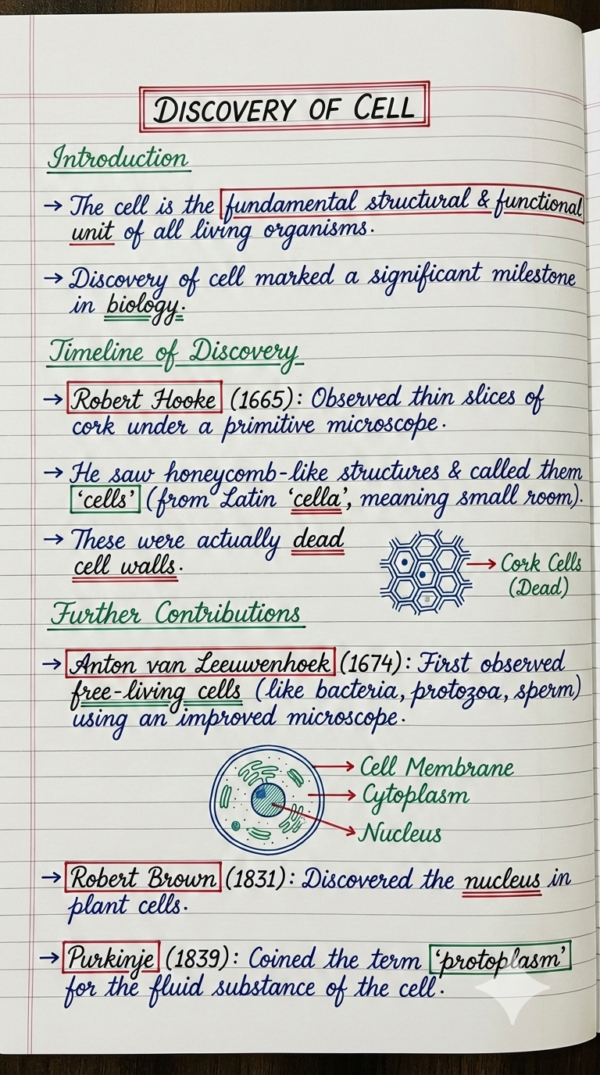 DISCOVERY OF CELL
Introduction
→ The cell is the fundamental structural & functional
unit of all living organisms.
→ Discovery of cell marked a significant milestone
in biology.
Timeline of Discovery
→ Robert Hooke (1665): Observed thin slices of
cork under a primitive microscope.
→ He saw honeycomb-like structures & called them
'cells' (from Latin 'cella', meaning small room).
→ These were actually dead
cell walls.
Cork Cells
(Dead)
Further Contributions
→ Anton van Leeuwenhoek (1674): First observed
free-living cells (like bacteria, protozoa, sperm)
using an improved microscope.
Cell Membrane
Cytoplasm
Nucleus
→ Robert Brown (1831): Discovered the nucleus in
plant cells.
→ Purkinje (1839): Coined the term 'protoplasm'
for the fluid substance of the cell.